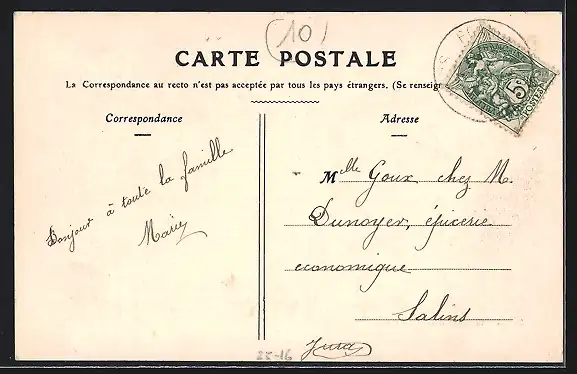 (10)
CARTE POSTALE
La Correspondance au recto n'est pas acceptée par tous les pays étrangers. (Se renseign
Correspondance
Adresse
Bonjour à toute la famille
Marie
Melle Goux chez M.
Dunoyer, épicerie
economique
Salins
Jura
25-16
5
POSTES